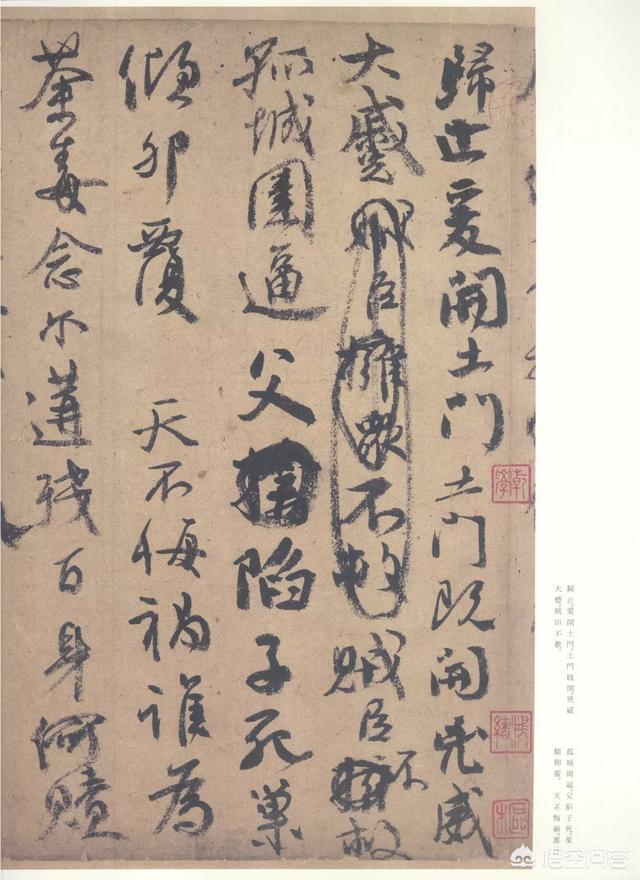 歸止爰開土門土門既開兇威
大蹙賊臣擁眾不救賊臣不救
孤城圍逼父陷子死巢
傾卵覆 天不悔禍誰為
荼毒念爾遘殘百身何贖
歸止。爰開土門。土門既開。兇威
大蹙。賊臣不救。
孤城圍逼。父陷子死。巢
傾卵覆。天不悔禍。誰
悟空问答